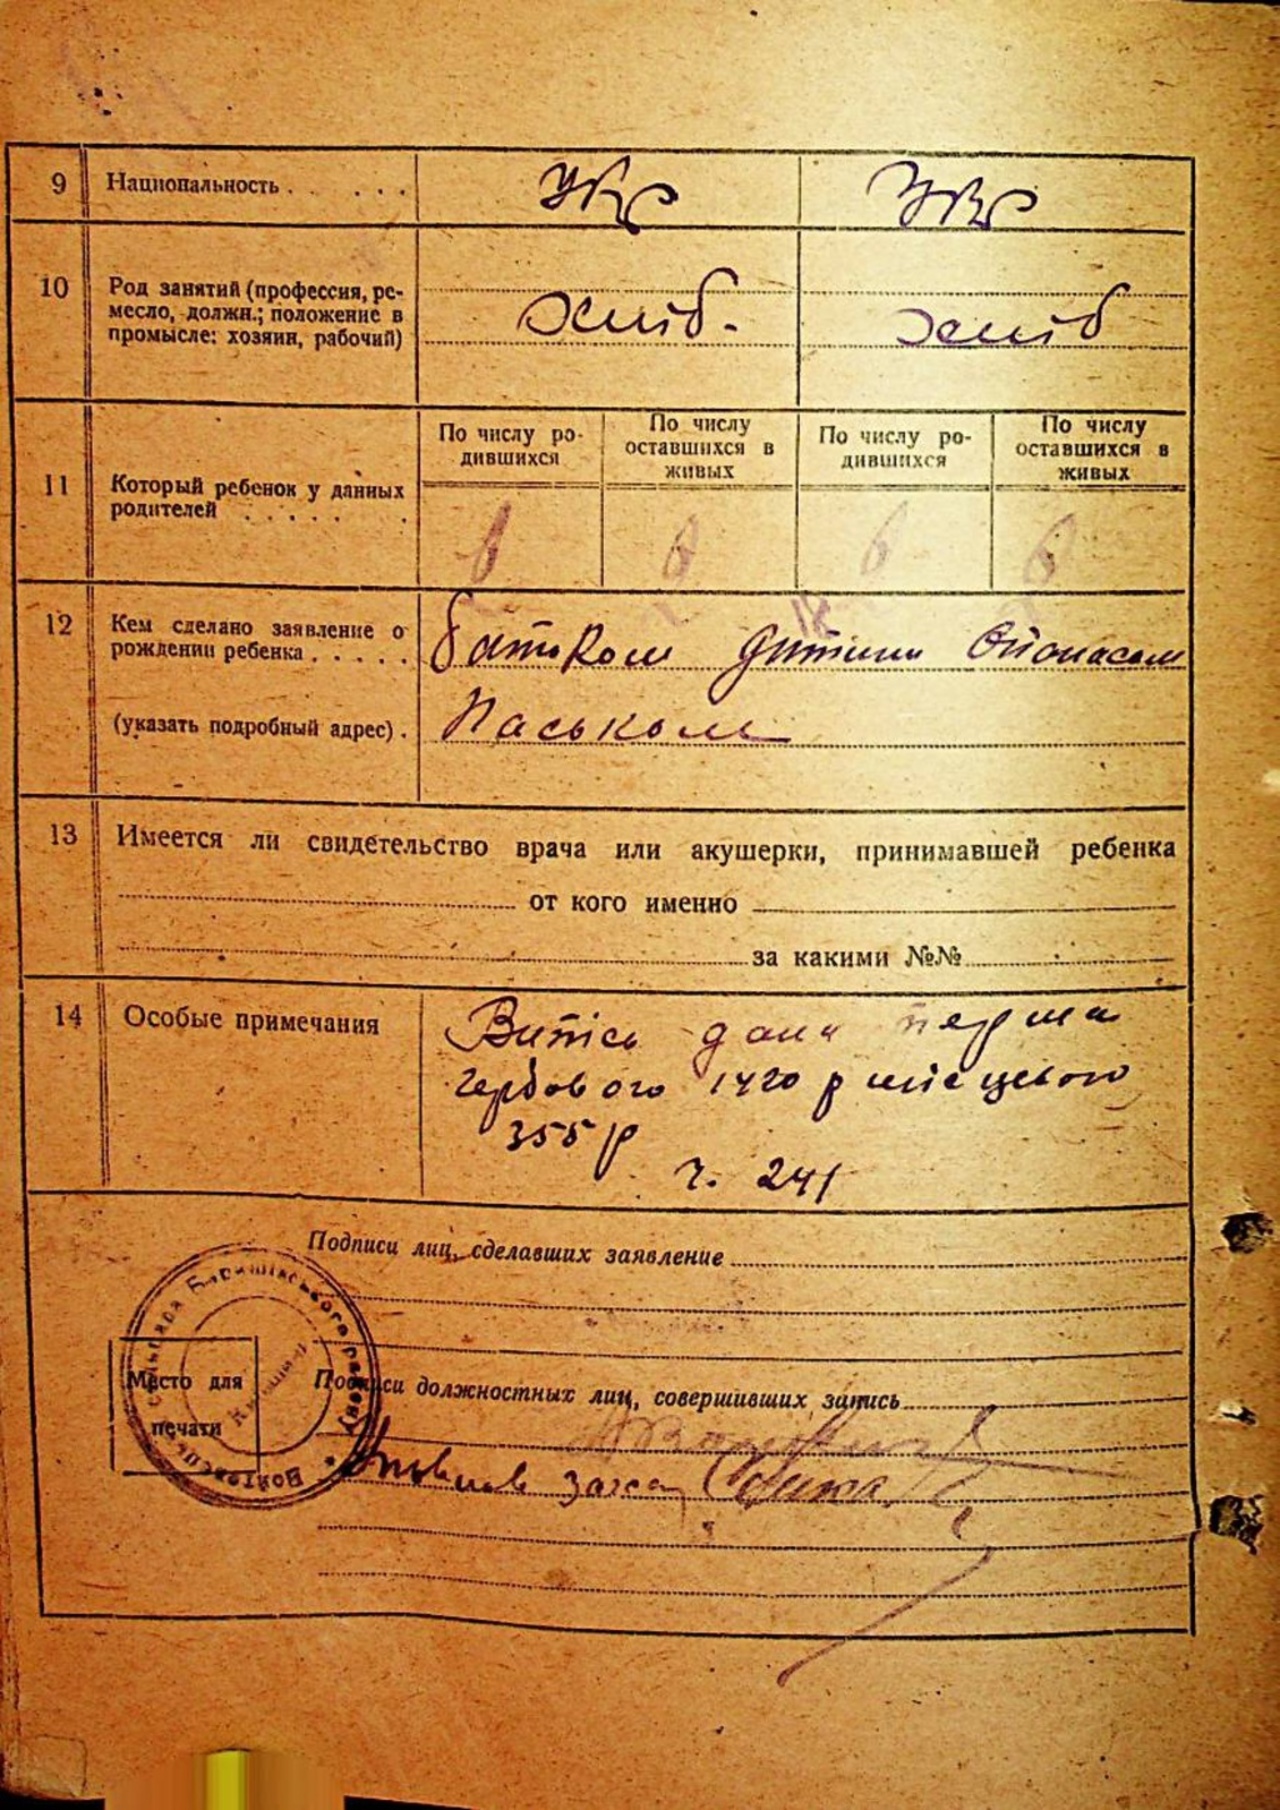 9 Национальность . . . . . Укр Укр
10 Род занятий (профессия, ре-
месло, должн.; положение в
промысле: хозяин, рабочий) хліб. хліб
11 Который ребенок у данных
родителей . . . . . .
По числу ро-
дившихся
По числу
оставшихся в
живых
По числу ро-
дившихся
По числу
оставшихся в
живых
6 6 6 6
12 Кем сделано заявление о
рождении ребенка . . . . . батьком дитини
(указать подробный адрес) . Паськом
13 Имеется ли свидетельство врача или акушерки, принимавшей ребенка
от кого именно
за какими №№
14 Особые примечания Витісь дана перша
гербового 1420 р місцевого
355 р
ч. 241
Подписи лиц, сделавших заявление
Место для
печати
Подписи должностных лиц, совершивших запись